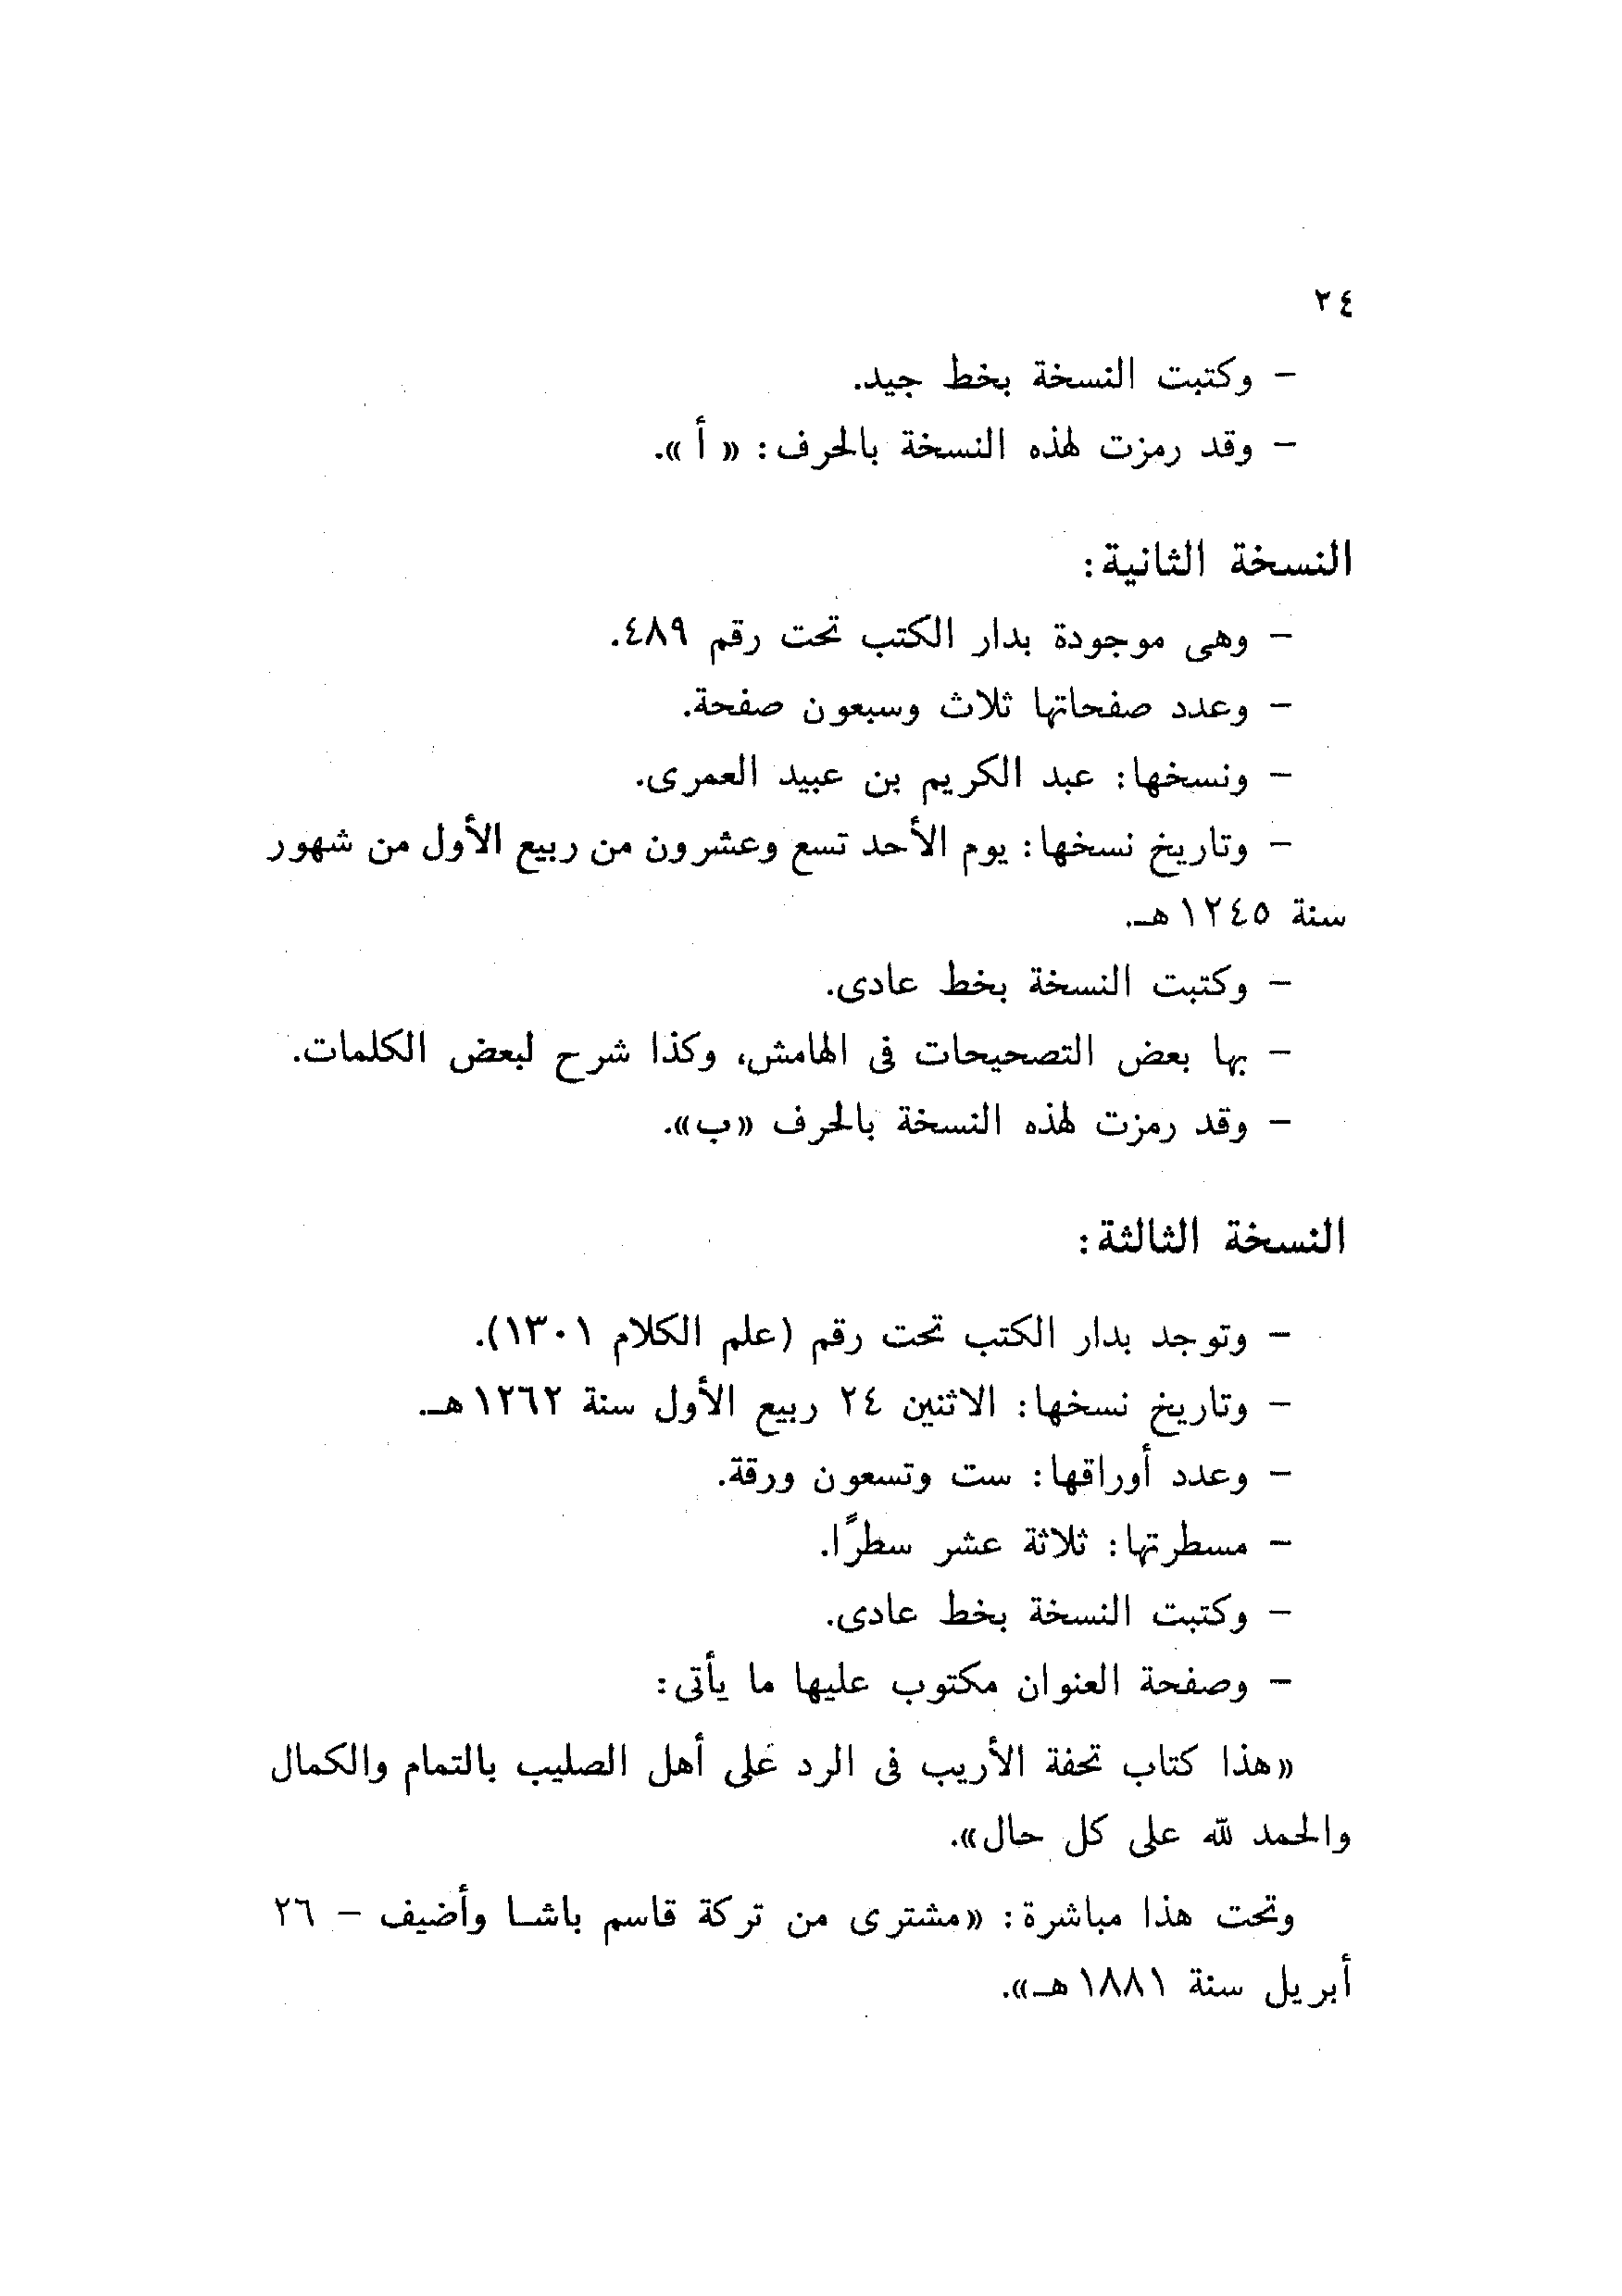 ٢٤
- وكتبت النسخة بخط جيد.
- وقد رمزت لهذه النسخة بالحرف: « أ ».
النسخة الثانية:
- وهى موجودة بدار الكتب تحت رقم ٤٨٩.
- وعدد صفحاتها ثلاث وسبعون صفحة.
- ونسخها: عبد الكريم بن عبيد العمرى.
- وتاريخ نسخها: يوم الأحد تسع وعشرون من ربيع الأول من شهور
سنة ١٢٤٥هـ.
- وكتبت النسخة بخط عادى.
- بها بعض التصحيحات فى الهامش، وكذا شرح لبعض الكلمات.
- وقد رمزت لهذه النسخة بالحرف «ب».
النسخة الثالثة:
- وتوجد بدار الكتب تحت رقم (علم الكلام ١٣٠١).
- وتاريخ نسخها: الاثنين ٢٤ ربيع الأول سنة ١٢٦٢هـ.
- وعدد أوراقها: ست وتسعون ورقة.
- مسطرتها: ثلاثة عشر سطرًا.
- وكتبت النسخة بخط عادى.
- وصفحة العنوان مكتوب عليها ما يأتى:
«هذا كتاب تحفة الأريب فى الرد على أهل الصليب بالتمام والكمال
والحمد لله على كل حال».
وتحت هذا مباشرة: «مشترى من تركة قاسم باشا وأضيف - ٢٦
أبريل سنة ١٨٨١هـ».